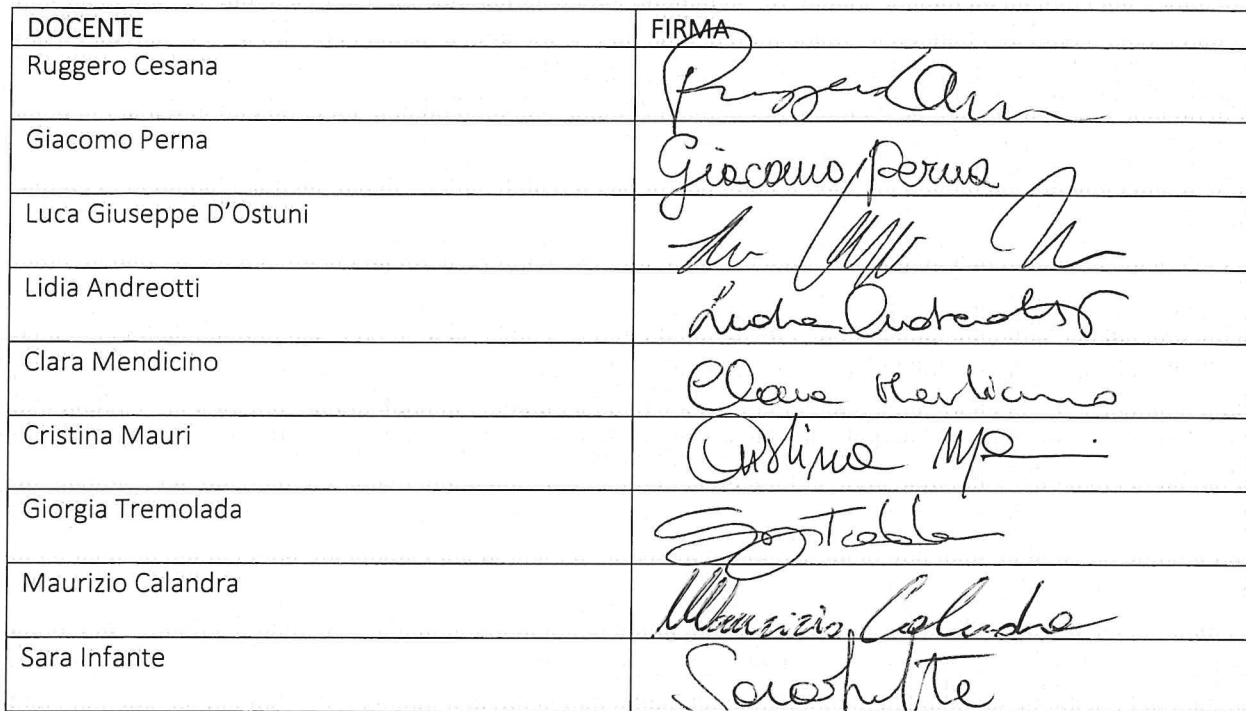 DOCENTE FIRMA
Ruggero Cesana
Giacomo Perna Giacomo Perna
Luca Giuseppe D'Ostuni
Lidia Andreotti Lidia Andreotti
Clara Mendicino Clara Mendicino
Cristina Mauri Cristina
Giorgia Tremolada
Maurizio Calandra Maurizio Calandra
Sara Infante Sara